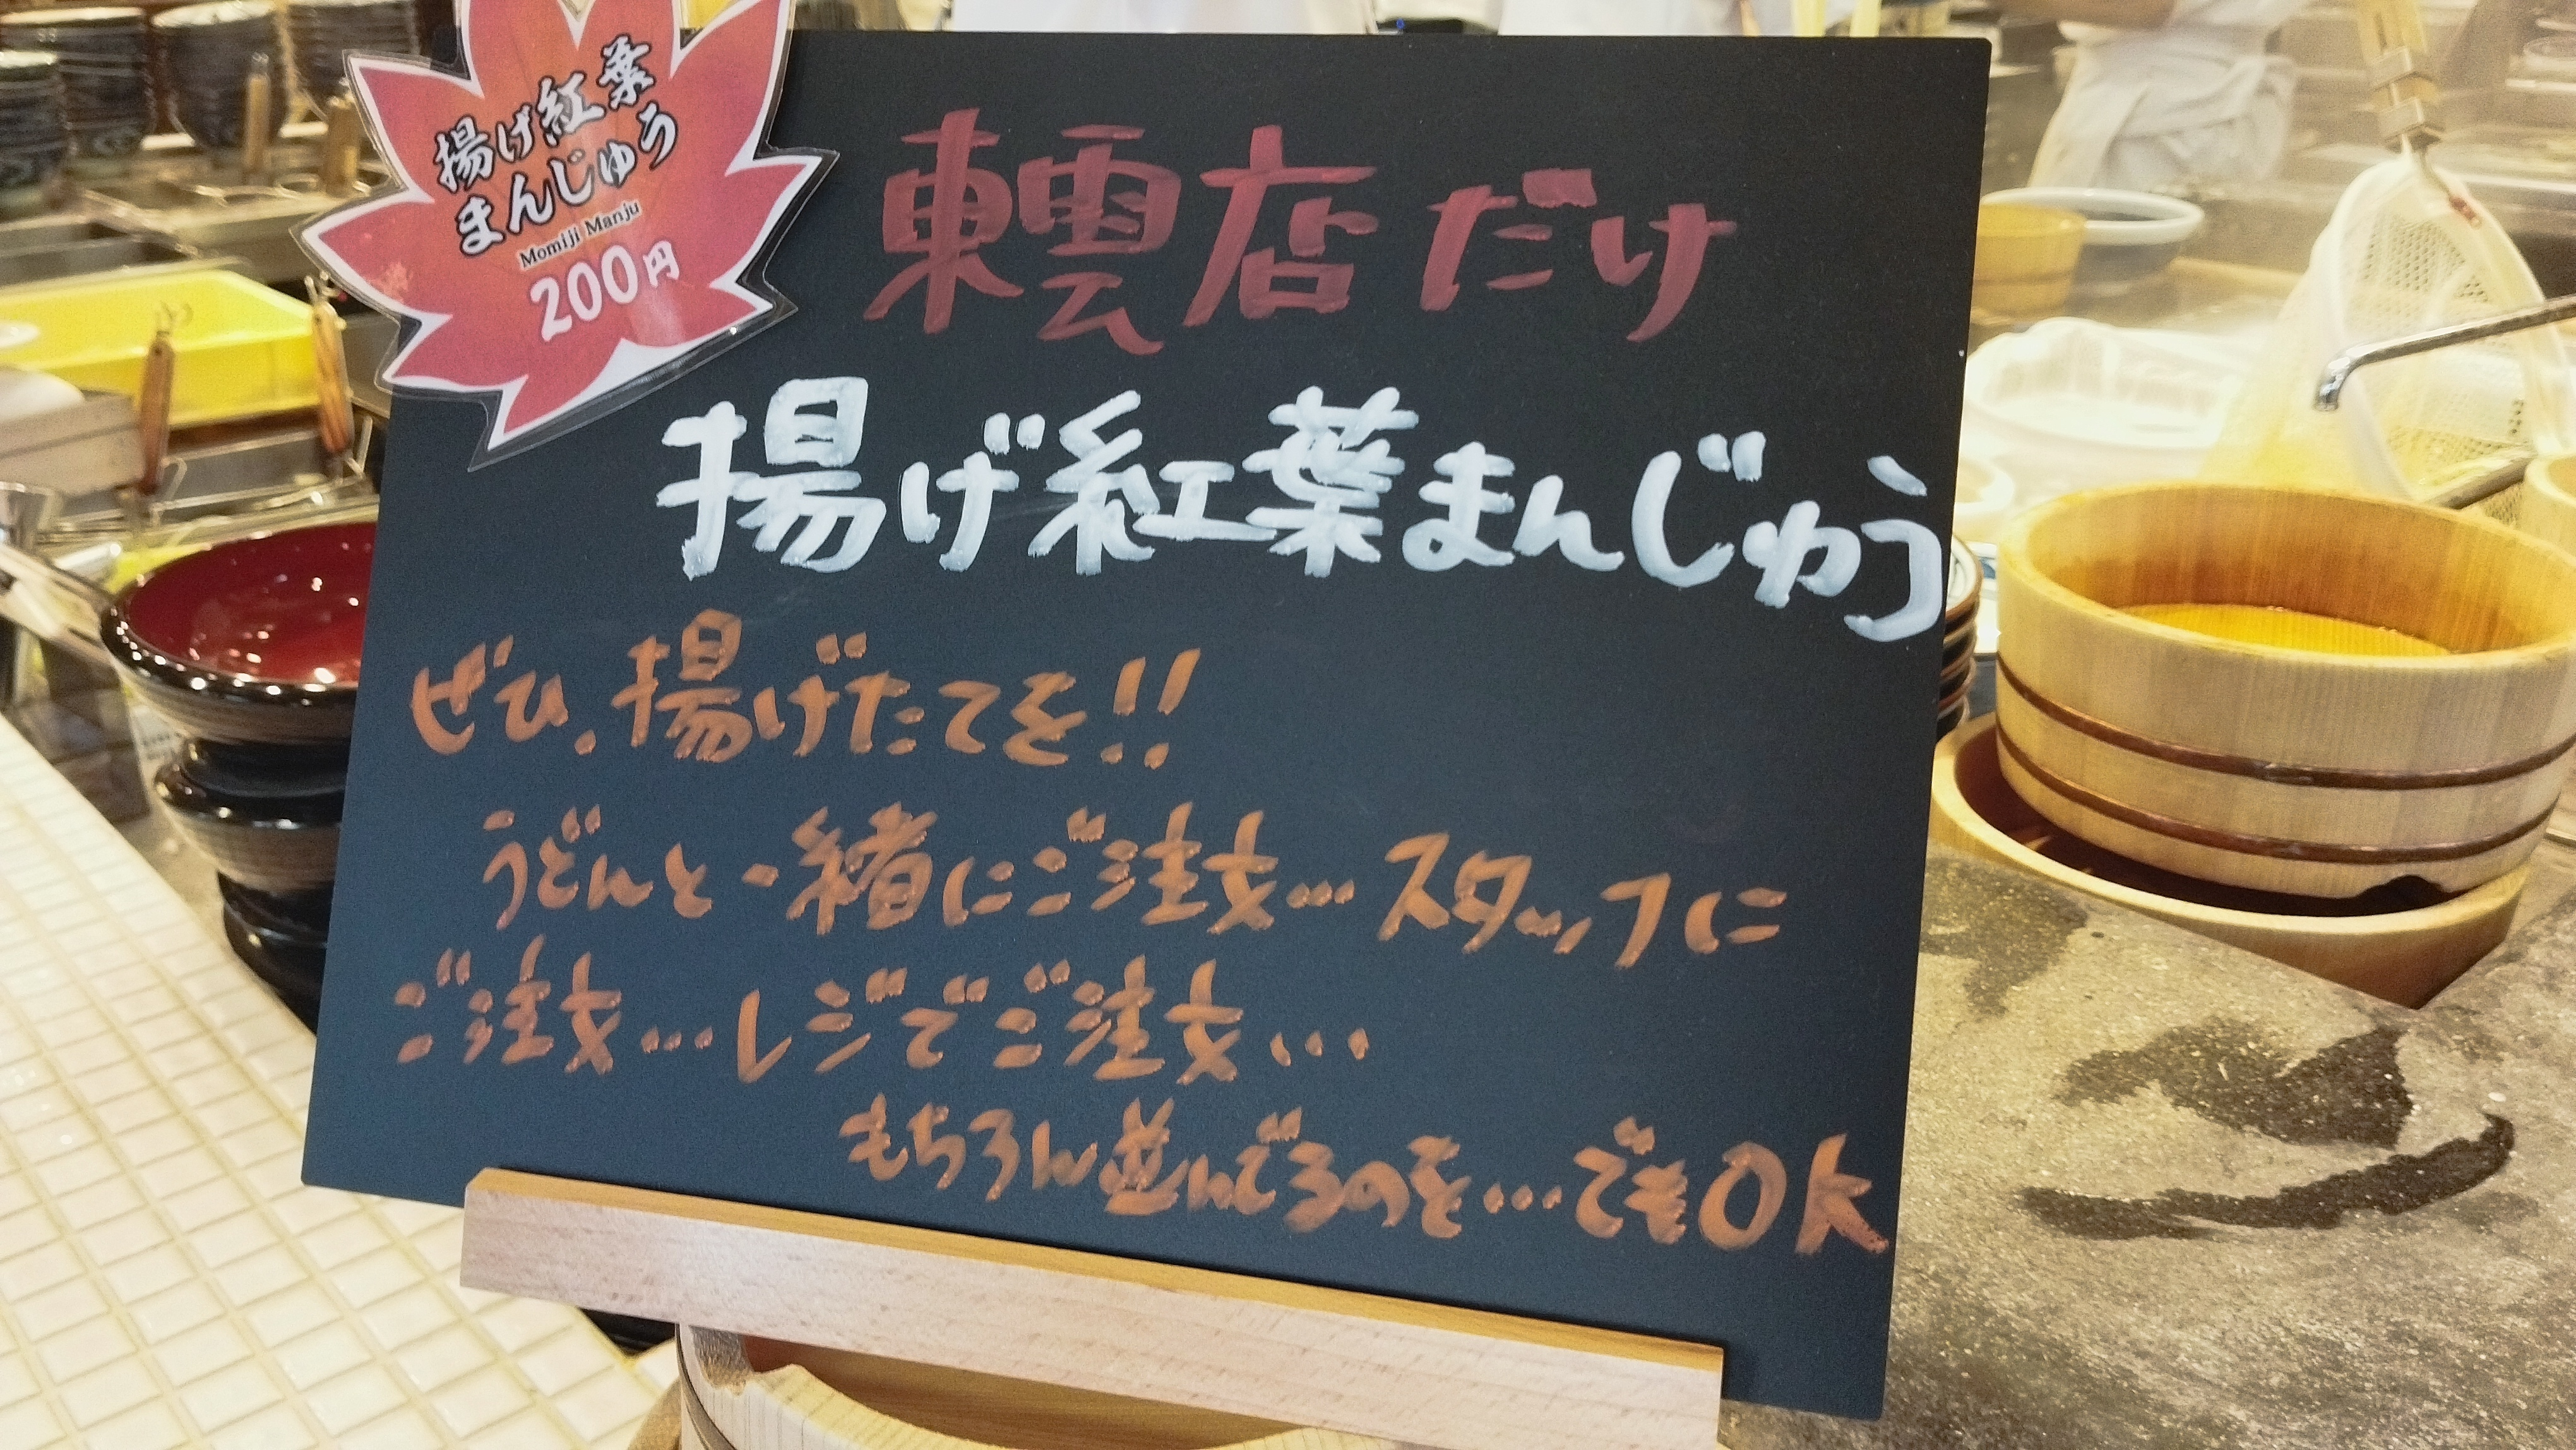 揚げ紅葉
まんじゅう
Momiji Manju
200円
東雲店だけ
揚げ紅葉まんじゅう
ぜひ、揚げたてを!!
うどんと一緒にご注文…スタッフに
ご注文…レジでご注文…
もちろん並んでるのを…でもOK